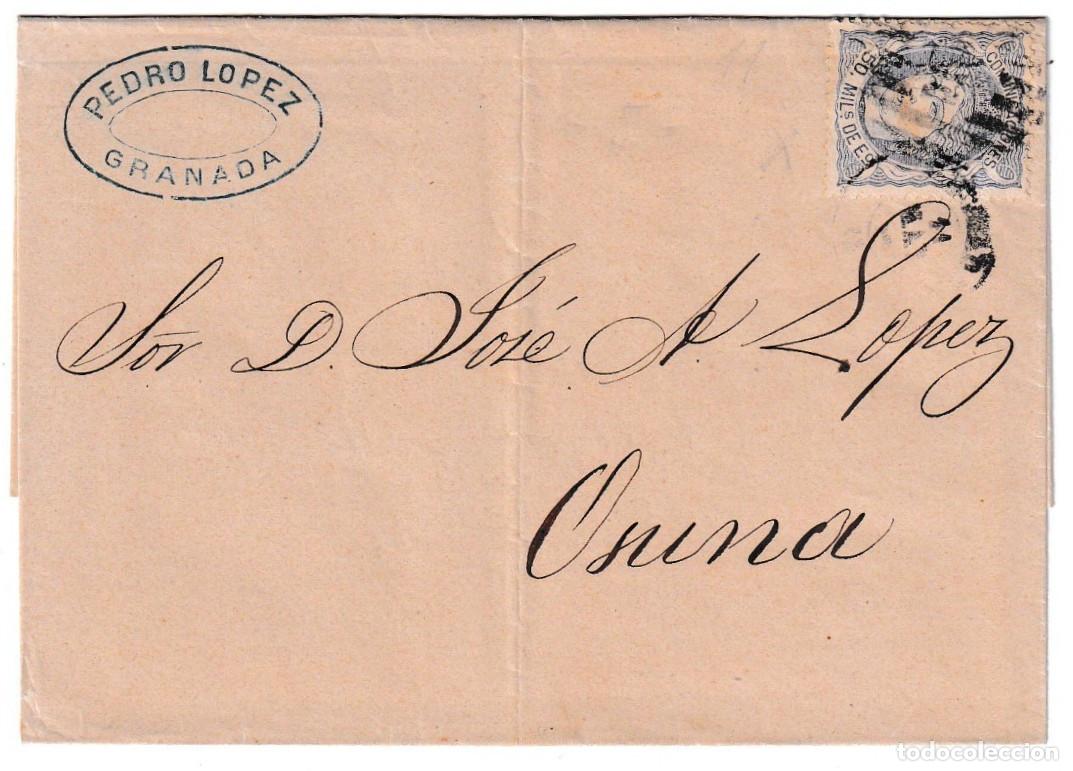 PEDRO LOPEZ
GRANADA
COMUNICACIONES
50. MILS. DE E
Sor D. José A. Lopez
Osuna
todocoleccion